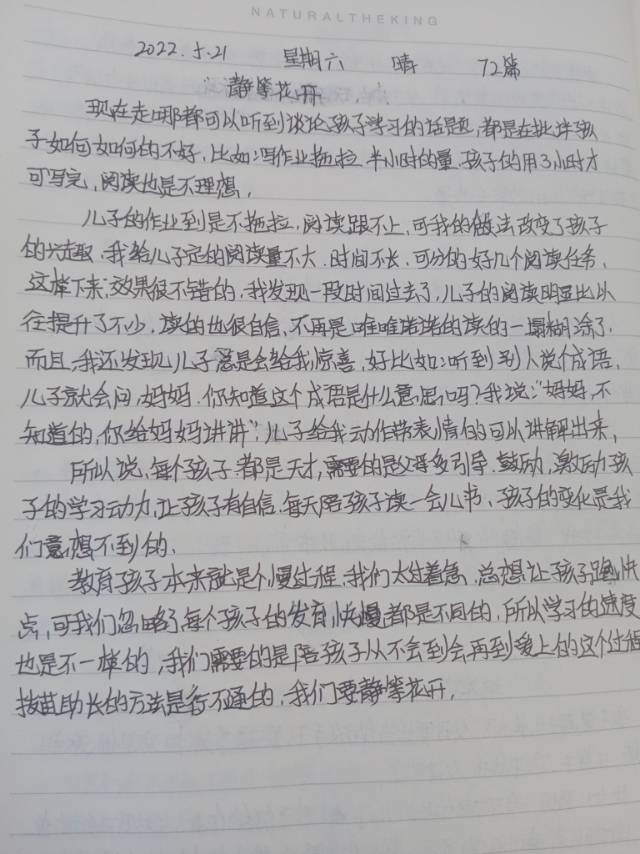 NATURALTHEKING
2022.5.21 星期六 晴 72篇
静等花开
现在走哪都可以听到谈论孩子学习的话题,都是在批评孩
子如何如何的不好,比如:写作业拖拉,半小时的量,孩子的用3小时才
可写完,阅读也是不理想。
儿子的作业到是不拖拉,阅读跟不上,可我的做法改变了孩子
的兴趣,我给儿子定的阅读量不大,时间不长,可分的好几个阅读任务,
这样下来,效果很不错的,我发现一段时间过去了,儿子的阅读明显比以
往提升了不少,读的也很自信,不再是唯唯诺诺的读的一塌糊涂了,
而且,我还发现儿子总是会给我惊喜,好比如:听到别人说个成语,
儿子就会问,妈妈,你知道这个成语是什么意思吗?我说:“妈妈,不
知道的,你给妈妈讲讲”;儿子给我动作带表情的可以讲解出来,
所以说,每个孩子都是天才,需要的是父母多引导,鼓励,激励孩
子的学习动力,让孩子有自信,每天陪孩子读一会儿书,孩子的变化是我
们意想不到的、
教育孩子本来就是个慢过程,我们太过着急,总想让孩子跑快
点,可我们忽略了每个孩子的发育快慢都是不同的,所以学习的速度
也是不一样的,我们需要的是陪孩子从不会到会再到爱上的这个过程
拔苗助长的方法是行不通的,我们要静等花开,